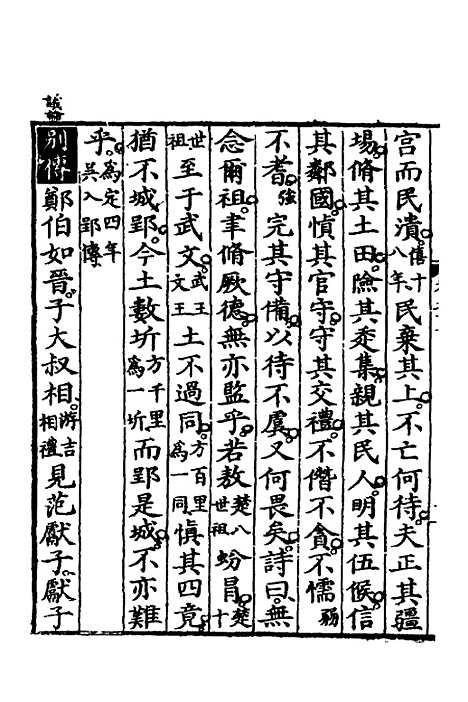 宮而民潰僖十八年民棄其上不亡何待夫正其疆
場脩其土田險其走集親其民人明其伍候信
其鄰國慎其官守守其交禮不僭不貪不懦弱
不耆強完其守備以待不虞又何畏矣詩曰無
念爾祖聿脩厥德無亦監乎若敖楚八世祖蚡冒楚十
世祖至于武文武王文王土不過同方百里為一同慎其四竟
猶不城郢今土數圻方千里為一圻而郢是城不亦難
乎為定四年吳入郢傳
別傳鄭伯如晉子大叔相游吉相禮見范獻子獻子
議論